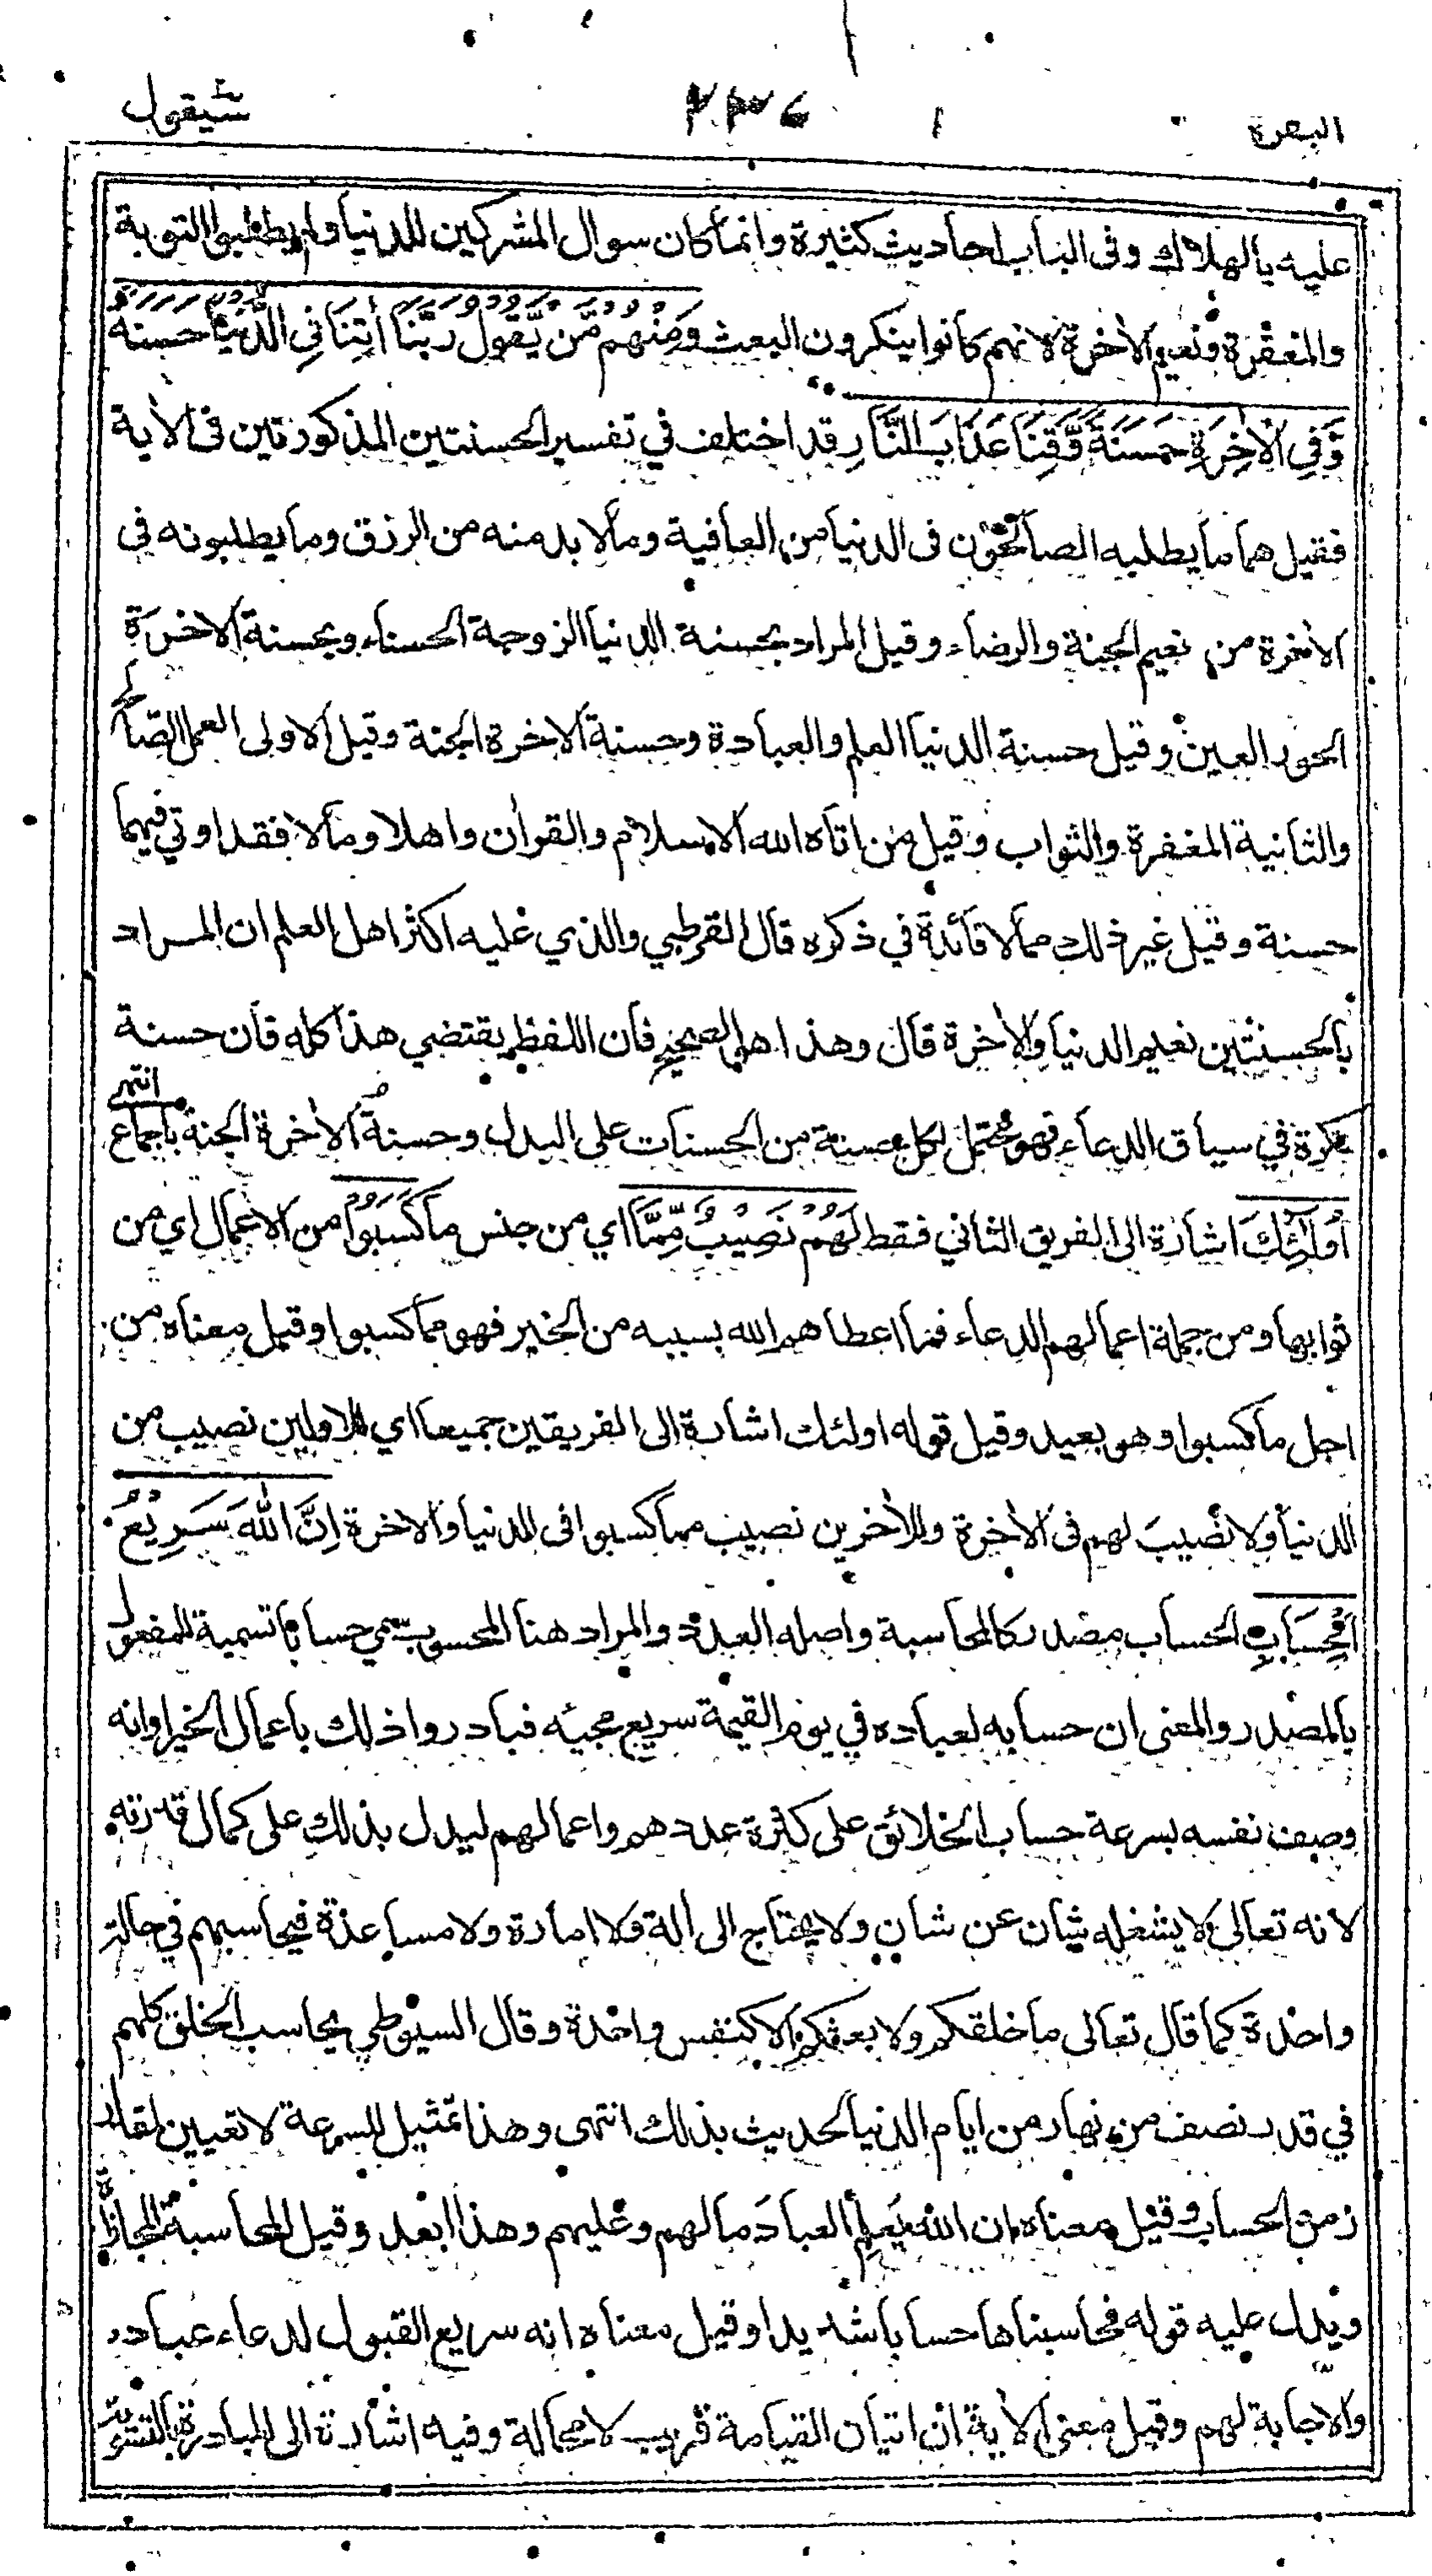 البقرة
٢٣٦
سيقول
عليه بالهلاك وفى الباب احاديث كثيرة وانما كان سوال المشركين للدنيا ولم يطلبوا التوبة
والمغفرة ونعيم الاٰخرة لانهم كانوا ينكرون البعث وَمِنْهُم مَّن يَّقُولُ رَبَّنَا اٰتِنَا فِي الدُّنْيَا حَسَنَةً
وَّفِي الْاٰخِرَةِ حَسَنَةً وَّقِنَا عَذَابَ النَّارِ قد اختلف في تفسير الحسنتين المذكورتين فى الاٰية
فقيل هما ما يطلبه الصالحون فى الدنيا من العافية وما لا بد منه من الرزق وما يطلبونه في
الاٰخرة من نعيم الجنة والرضاء وقيل المراد بحسنة الدنيا الزوجة الحسناء وبحسنة الاخرة
الحور العين وقيل حسنة الدنيا العلم والعبادة وحسنة الاخرة الجنة وقيل الاولى العمل الصالح
والثانية المغفرة والثواب وقيل من اتاه الله الاسلام والقراٰن واهلا ومالا فقد اوتي فيهما
حسنة وقيل غير ذلك مما لا فائدة في ذكره قال القرطبي والذي عليه اكثر اهل العلم ان المراد
بالحسنتين نعيم الدنيا والاٰخرة قال وهذا هو الصحيح فان اللفظ يقتضي هذا كله فان حسنة
نكرة في سياق الدعاء فهو محتمل لكل حسنة من الحسنات على البدل وحسنة الاٰخرة الجنة باجماع انتهى
اُولٰٓئِكَ اشارة الى الفريق الثاني فقط لَهُمْ نَصِيْبٌ مِّمَّا اي من جنس ما كَسَبُوْا من الاعمال اي من
ثوابها ومن جملة اعمالهم الدعاء فما اعطاهم الله بسببه من الخير فهو مما كسبوا وقيل معناه من
اجل ما كسبوا وهو بعيد وقيل قوله اولئك اشارة الى الفريقين جميعا اي للاولين نصيب من
الدنيا ولا نصيب لهم فى الاٰخرة وللاٰخرين نصيب مما كسبوا فى الدنيا والاخرة اِنَّ اللهَ سَرِيْعُ
الْحِسَابِ الحساب مصدر كالمحاسبة واصله العدد والمراد هنا المحسوب سمي حسابا تسمية للمفعول
بالمصدر والمعنى ان حسابه لعباده في يوم القيمة سريع مجيئه فبادروا ذلك باعمال الخير او انه
وصف نفسه بسرعة حساب الخلائق على كثرة عددهم واعمالهم ليدل بذلك على كمال قدرته
لانه تعالى لا يشغله شان عن شان ولا يحتاج الى اٰلة ولا امارة ولا مساعدة فيحاسبهم في حالة
واحدة كما قال تعالى ما خلقكم ولا بعثكم الا كنفس واحدة وقال السيوطي يحاسب الخلق كلهم
في قدر نصف من نهار من ايام الدنيا لحديث بذلك انتهى وهذا تمثيل للسرعة لا تعيين لمقدار
زمن الحساب وقيل معناه ان الله يعلم العباد ما لهم وعليهم وهذا ابعد وقيل المحاسبة المجازاة
ويدل عليه قوله فحاسبناها حسابا شديدا وقيل معناه انه سريع القبول لدعاء عباده
والاجابة لهم وقيل معنى الاٰية ان اتيان القيامة قريب لا محالة وفيه اشارة الى المبادرة